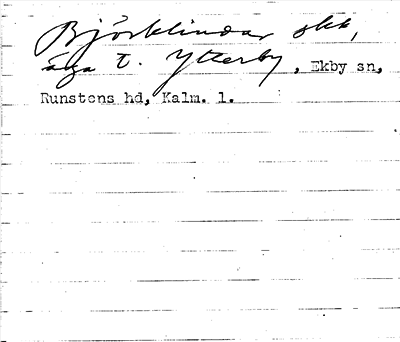 Björklindar skk,
äga t. Ytterby, Ekby sn,
Runstens hd, Kalm. l.